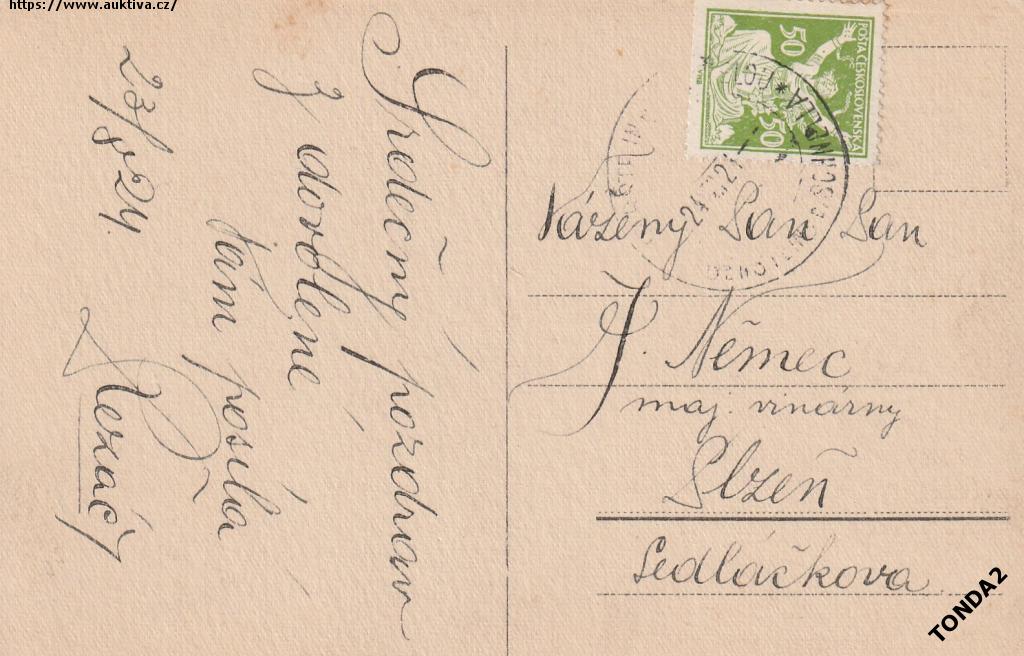 https://www.auktiva.cz/
Srdečný pozdrav
z dovolené
Vám posílá
Řezáč
23/8 24.
POŠTA ČESKOSLOVENSKÁ
50
50
24
Vážený Pan Pan
J. Němec
maj. vinárny
Plzeň
Sedláčkova.
TONDA2